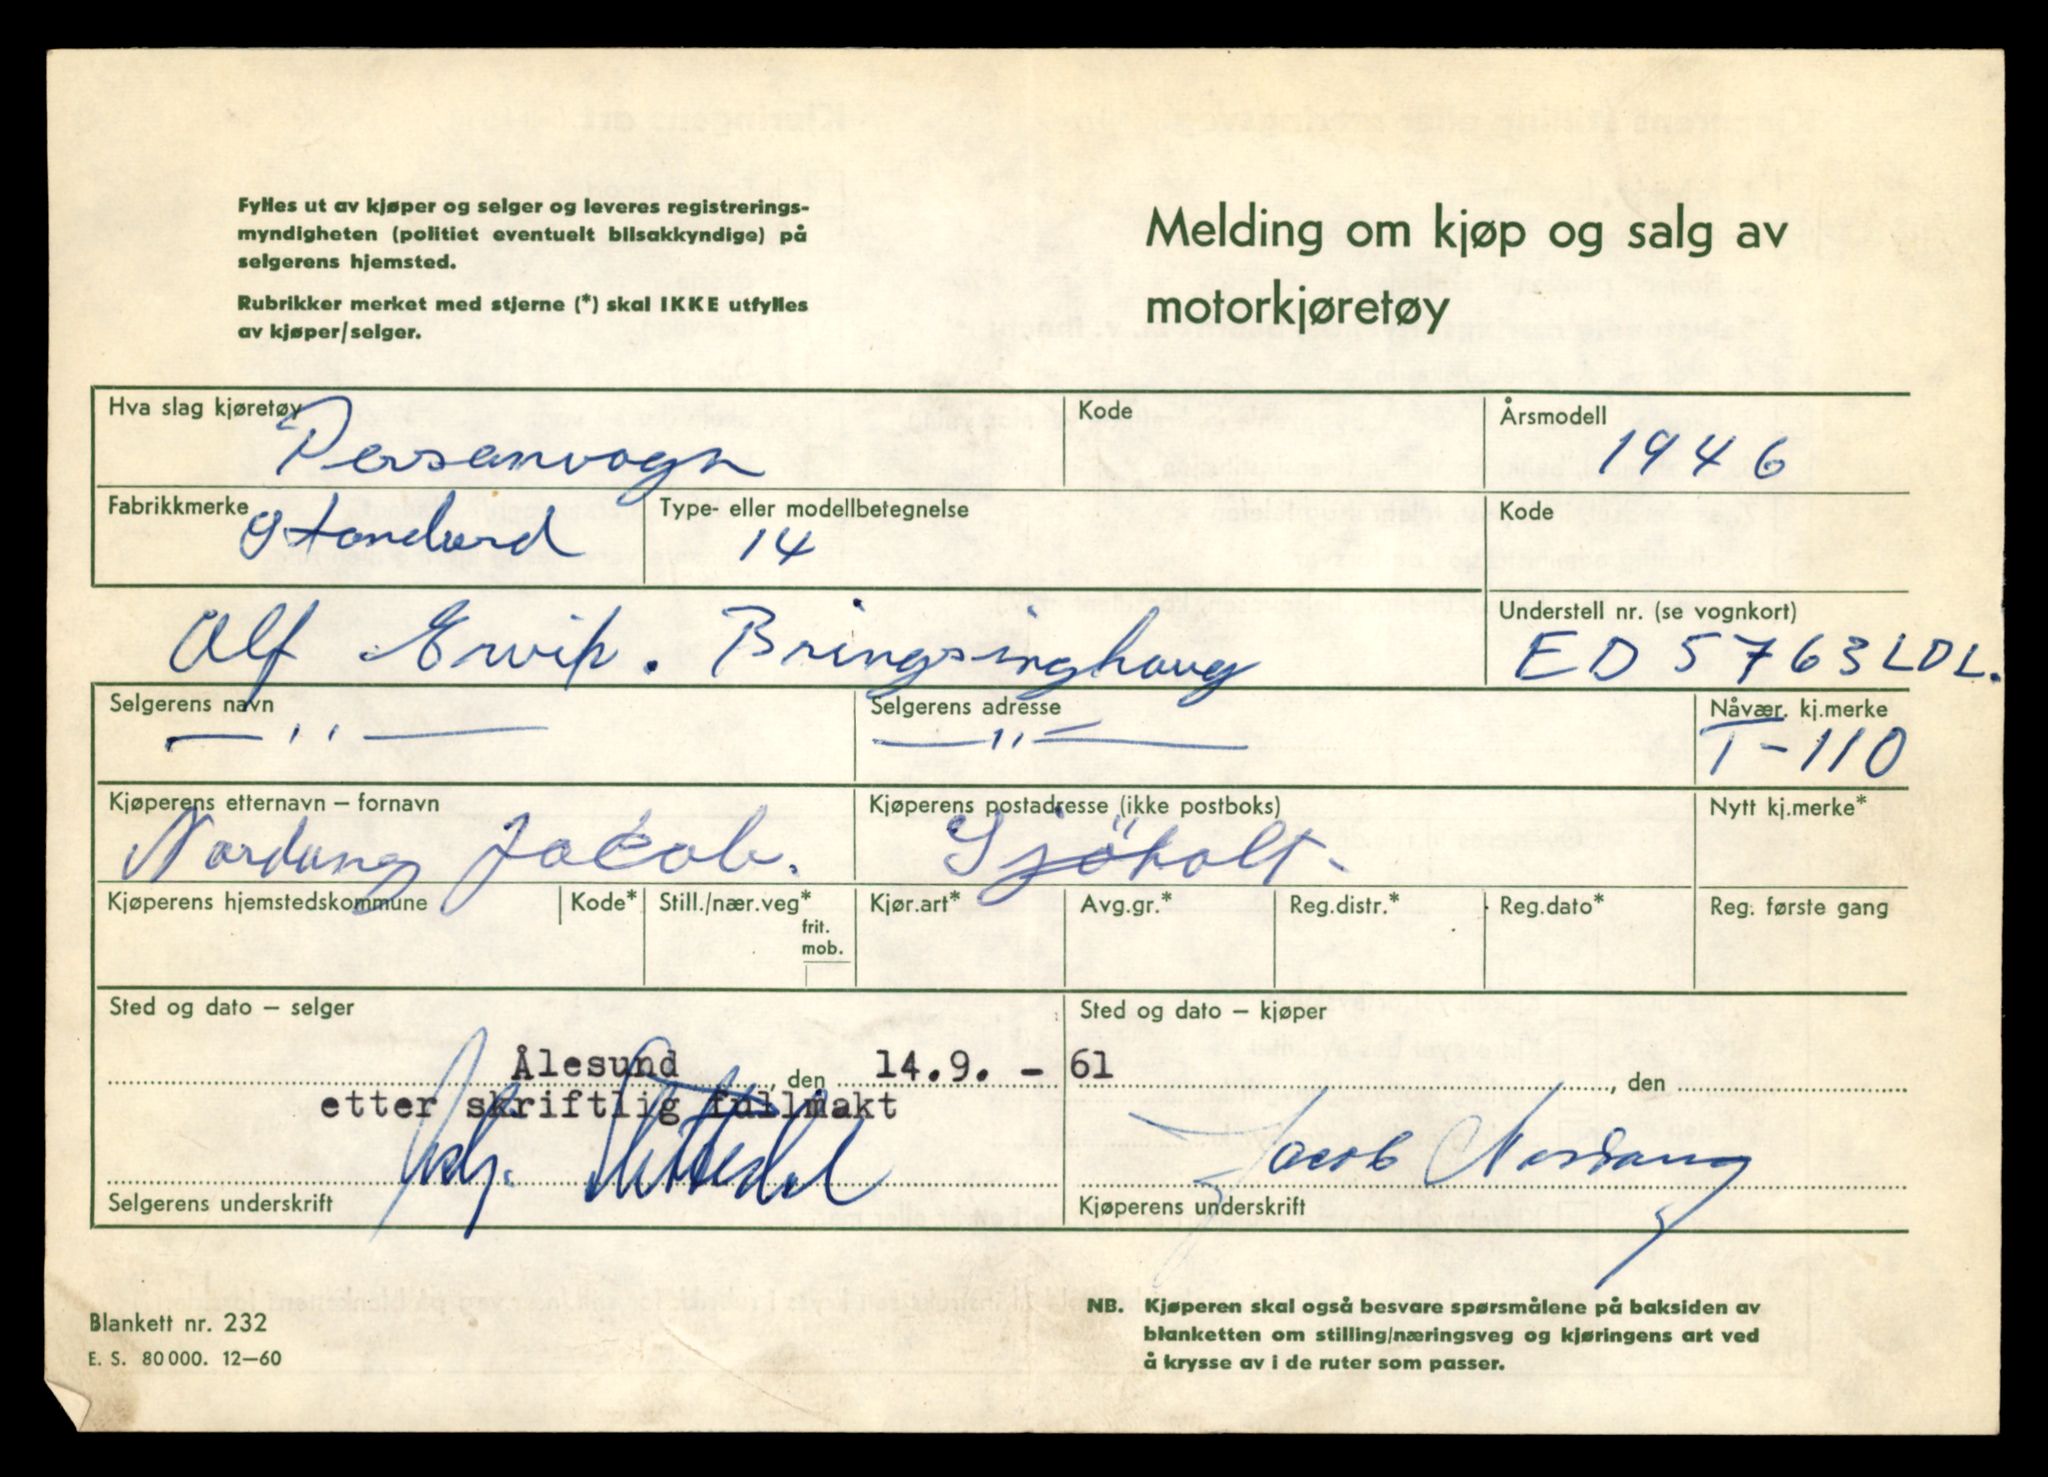 Fylles ut av kjøper og selger og leveres registrerings-
myndigheten (politiet eventuelt bilsakkyndige) på
selgerens hjemsted.
Rubrikker merket med stjerne (*) skal IKKE utfylles
av kjøper/selger.
Melding om kjøp og salg av
motorkjøretøy
Hva slag kjøretøy Kode Årsmodell
Personvogn 1946
Fabrikkmerke Type- eller modellbetegnelse Kode
Standard 14
Understell nr. (se vognkort)
Alf Bringsinghaug ED 5763 LDL.
Selgerens navn Selgerens adresse Nåvær. kj.merke
— ,, — — ,, — T-110
Kjøperens etternavn – fornavn Kjøperens postadresse (ikke postboks) Nytt kj.merke*
Nordang Jacob. Sjöholt.
Kjøperens hjemstedskommune Kode* Still./nær.veg* Kjør.art* Avg.gr.* Reg.distr.* Reg.dato* Reg. første gang
frit.
mob.
Sted og dato – selger Sted og dato – kjøper
Ålesund, den 14.9. - 61 , den
etter skriftlig fullmakt
Jacob Nordang
Selgerens underskrift Kjøperens underskrift
Blankett nr. 232
E. S. 80 000. 12–60
NB. Kjøperen skal også besvare spørsmålene på baksiden av
blanketten om stilling/næringsveg og kjøringens art ved
å krysse av i de ruter som passer.